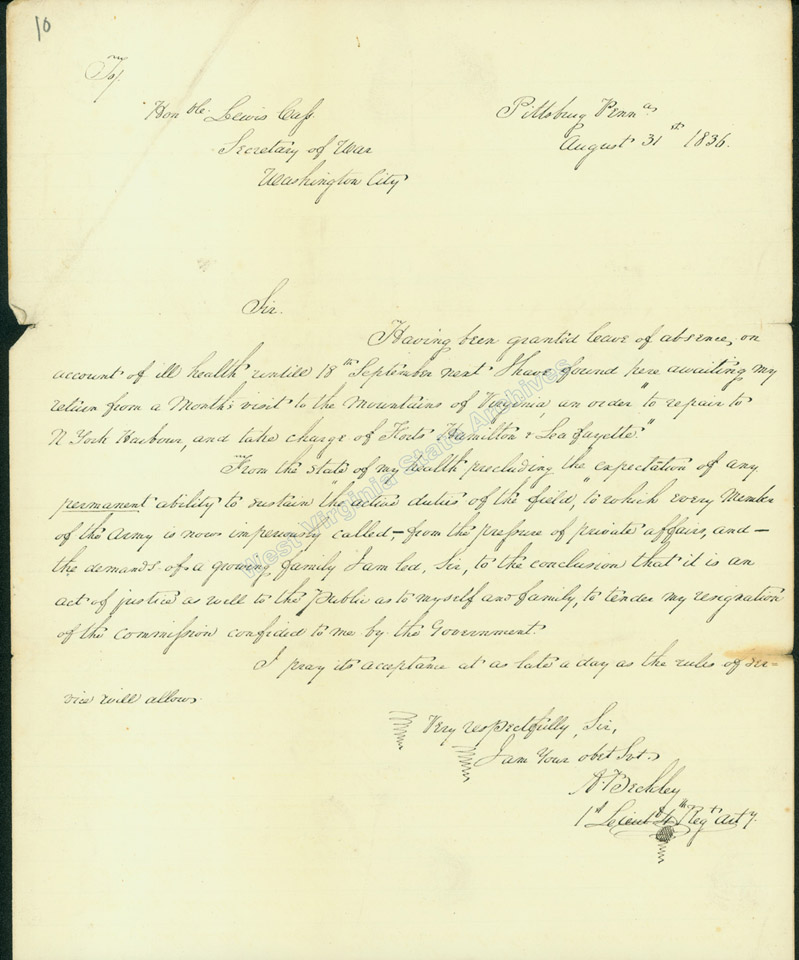 10
To/
Honble. Lewis Cass
Secretary of War
Washington City
Pittsburg Penna
August 31st 1836.
Sir.
Having been granted leave of absence, on
account of ill health untill 18th September next I have found here awaiting my
return from a Month's visit to the Mountains of Virginia an order "to repair to
N York Harbour, and take charge of Forts Hamilton & Lafayette."
From the state of my health precluding the expectation of any
permanent ability to sustain "the active duties of the field," to which every Member
of the Army is now imperiously called—from the pressure of private affairs, and—
the demands of a growing family I am led, Sir, to the conclusion that it is an
act of justice as well to the Public as to myself and family, to tender my resignation
of the Commission confided to me by the Government.
I pray its acceptance at as late a day as the rules of ser=
vice will allow.
Very respectfully, Sir,
I am Your obt Svt.
A. Beckley
1st Lieut 4th Regt Arty.
West Virginia State Archives